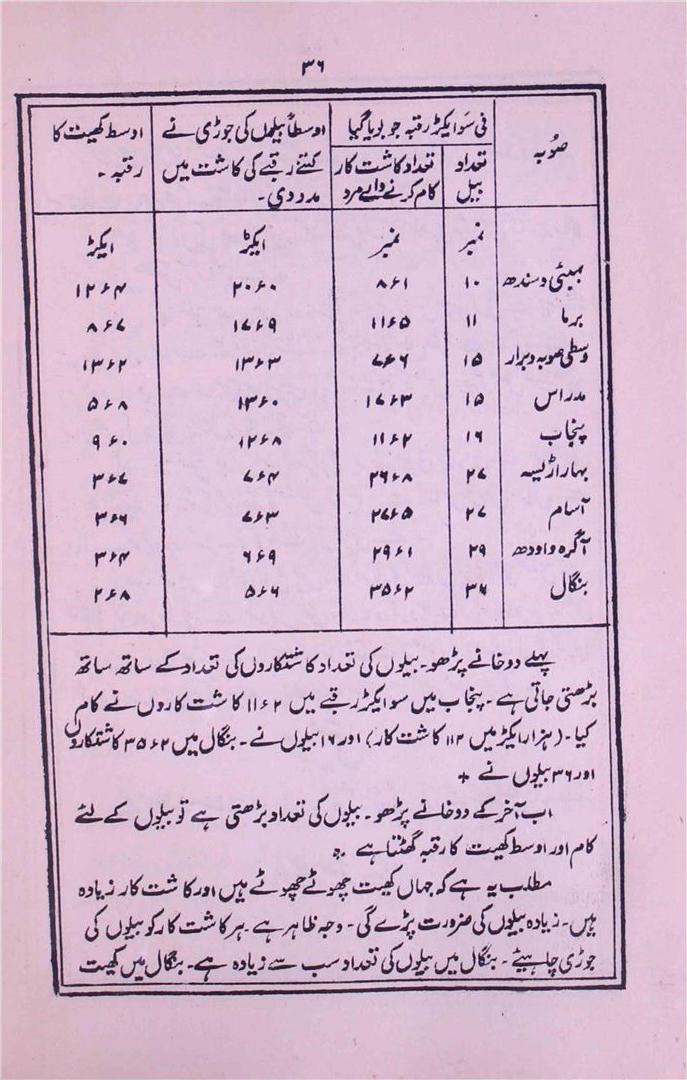 ۳۶
صُوبہ | فی سَو ایکڑ رقبہ جو بویا گیا | اوسطاً بیلوں کی جوڑی نے کتنے رقبے کی کاشت میں مدد دی۔ | اوسط کھیت کا رقبہ۔
تعداد بیل | تعداد کاشت کار کام کرنے والے مرد
نمبر | نمبر | ایکڑ | ایکڑ
بمبئی و سندھ | ۱۰ | ۸٫۱ | ۲۰٫۰ | ۱۲٫۴
برما | ۱۱ | ۱۱٫۵ | ۱۷٫۹ | ۸٫۷
وسطی صوبہ و برار | ۱۵ | ۷٫۶ | ۱۳٫۳ | ۱۳٫۲
مدراس | ۱۵ | ۱۷٫۳ | ۱۳٫۰ | ۵٫۸
پنجاب | ۱۶ | ۱۱٫۲ | ۱۲٫۸ | ۹٫۰
بہار اڑیسہ | ۲۷ | ۲۶٫۸ | ۷٫۴ | ۳٫۷
آسام | ۲۷ | ۲۷٫۵ | ۷٫۳ | ۳٫۶
آگرہ و اودھ | ۲۹ | ۲۹٫۱ | ۶٫۹ | ۳٫۴
بنگال | ۳۶ | ۳۵٫۲ | ۵٫۶ | ۲٫۸
پہلے دو خانے پڑھو۔ بیلوں کی تعداد کاشتکاروں کی تعداد کے ساتھ ساتھ
بڑھتی جاتی ہے۔ پنجاب میں سو ایکڑ رقبے میں ۱۱٫۲ کاشت کاروں نے کام
کیا۔ (ہزار ایکڑ میں ۱۱۲ کاشت کار) اور ۱۶ بیلوں نے۔ بنگال میں ۳۵٫۲ کاشتکاروں
اور ۳۶ بیلوں نے +
اب آخر کے دو خانے پڑھو۔ بیلوں کی تعداد بڑھتی ہے تو بیلوں کے لئے
کام اور اوسط کھیت کا رقبہ گھٹتا ہے۔
مطلب یہ ہے کہ جہاں کھیت چھوٹے چھوٹے ہیں اور کاشت کار زیادہ
ہیں۔ زیادہ بیلوں کی ضرورت پڑے گی۔ وجہ ظاہر ہے۔ ہر کاشت کار کو بیلوں کی
جوڑی چاہیئے۔ بنگال میں بیلوں کی تعداد سب سے زیادہ ہے۔ بنگال میں کھیت